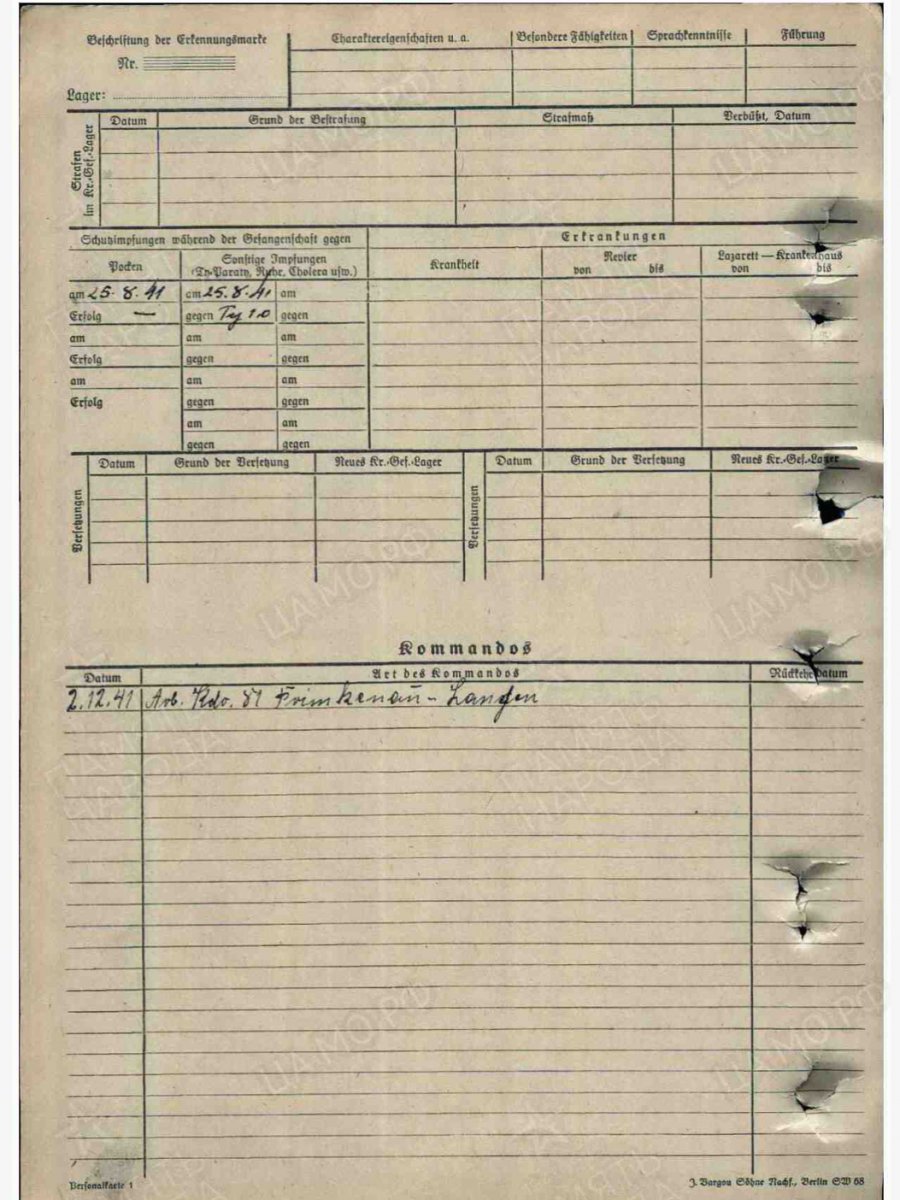 Beschriftung der Erkennungsmarke
Nr.
Lager:
Charaktereigenschaften u. a. Besondere Fähigkeiten Sprachkenntnisse Führung
Strafen im Kr.-Gef.-Lager
Datum Grund der Bestrafung Strafmaß Verbüßt, Datum
Schutzimpfungen während der Gefangenschaft gegen Erkrankungen
Pocken Sonstige Impfungen Krankheit Revier Lazarett — Krankenhaus
(Ty-Paraty, Ruhr, Cholera usw.) von bis von bis
am 25. 8. 41 am 25. 8. 41 am
Erfolg — gegen Ty gegen
am am am
Erfolg gegen gegen
am am am
Erfolg gegen gegen
am am
gegen gegen
Versetzungen
Datum Grund der Versetzung Neues Kr.-Gef.-Lager
Versetzungen
Datum Grund der Versetzung Neues Kr.-Gef.-Lager
Kommandos
Datum Art des Kommandos Rückkehrdatum
2.12.41 Arb. Kdo. Langen
Personalkarte 1
J. Bargou Söhne Nachf., Berlin SW 68
ЦАМО РФ
ПАМЯТЬ НАРОДА